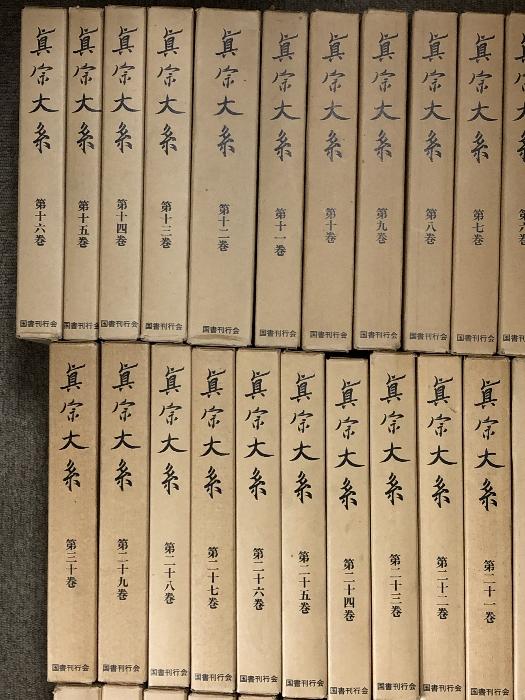 眞宗大系 第十六巻 国書刊行会
眞宗大系 第十五巻 国書刊行会
眞宗大系 第十四巻 国書刊行会
眞宗大系 第十三巻 国書刊行会
眞宗大系 第十二巻 国書刊行会
眞宗大系 第十一巻 国書刊行会
眞宗大系 第十巻 国書刊行会
眞宗大系 第九巻 国書刊行会
眞宗大系 第八巻 国書刊行会
眞宗大系 第七巻 国書刊行会
眞宗大系 第三十巻 国書刊行会
眞宗大系 第二十九巻 国書刊行会
眞宗大系 第二十八巻 国書刊行会
眞宗大系 第二十七巻 国書刊行会
眞宗大系 第二十六巻 国書刊行会
眞宗大系 第二十五巻 国書刊行会
眞宗大系 第二十四巻 国書刊行会
眞宗大系 第二十三巻 国書刊行会
眞宗大系 第二十二巻 国書刊行会
眞宗大系 第二十一巻 国書刊行会